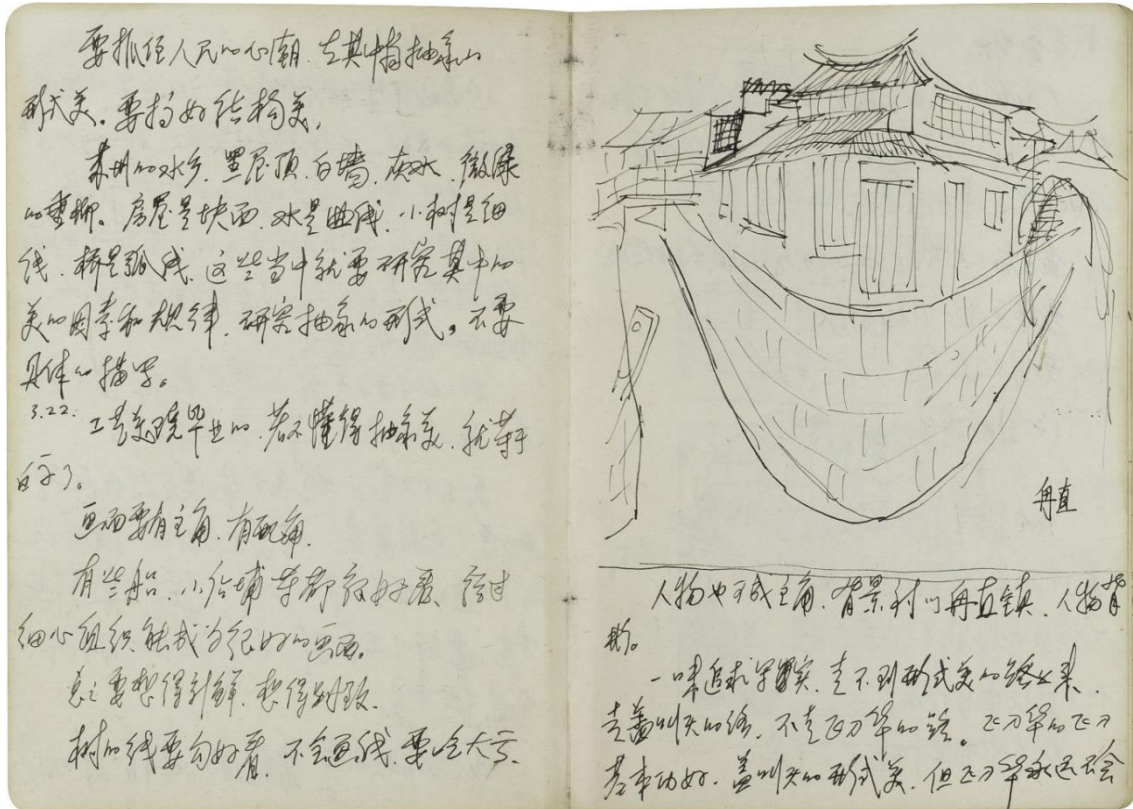 要抓住人民的心潮.去其中有抽象的
形式美。要抓好结构美.
苏州的水乡.黑屋顶.白墙.灰水.微绿
的垂柳。房屋是块面.水是曲线.小树是细
线.桥是弧线.这些当中就要研究其中的
美的因素和规律.研究抽象的形式。不要
具体的描写。
3.22.
工艺美院毕业的.若不懂得抽象美.就等于
白学了。
画面要有主角.有配角.
有些船.小 埠 等都 好看.经过
细心组织能成为很好的画面。
总之要想得新鲜.想得别致.
树的线要勾好看.不会画线.要吃大亏.
甪直
人物也可成主角.背景衬以甪直镇.人物背
影。
一味追求写实.走不到形式美的路上来.
走盖叫天的路.不走飞刀华的路。飞刀华的飞刀
基本功好.盖叫天的形式美.但飞刀华永远不会